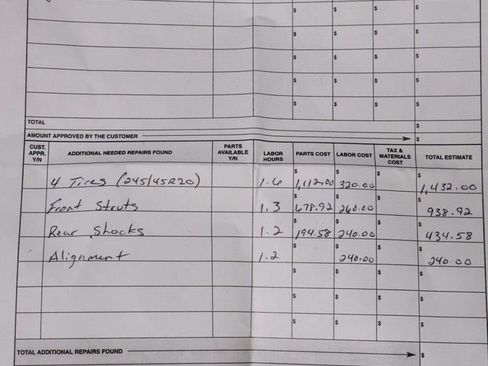 $ $ $ $
$ $ $ $
$ $ $ $
$ $ $ $
$ $ $ $
TOTAL $
AMOUNT APPROVED BY THE CUSTOMER $
CUST. APPR. Y/N ADDITIONAL NEEDED REPAIRS FOUND PARTS AVAILABLE Y/N LABOR HOURS PARTS COST LABOR COST TAX & MATERIALS COST TOTAL ESTIMATE
4 Tires (245/45R20) 1.6 $1,112.00 $320.00 $ $1,432.00
Front Struts 1.3 $678.92 $260.00 $ $938.92
Rear Shocks 1.2 $194.58 $240.00 $ $434.58
Alignment 1.2 $ $240.00 $ $240.00
$ $ $ $
$ $ $ $
$ $ $ $
TOTAL ADDITIONAL REPAIRS FOUND $